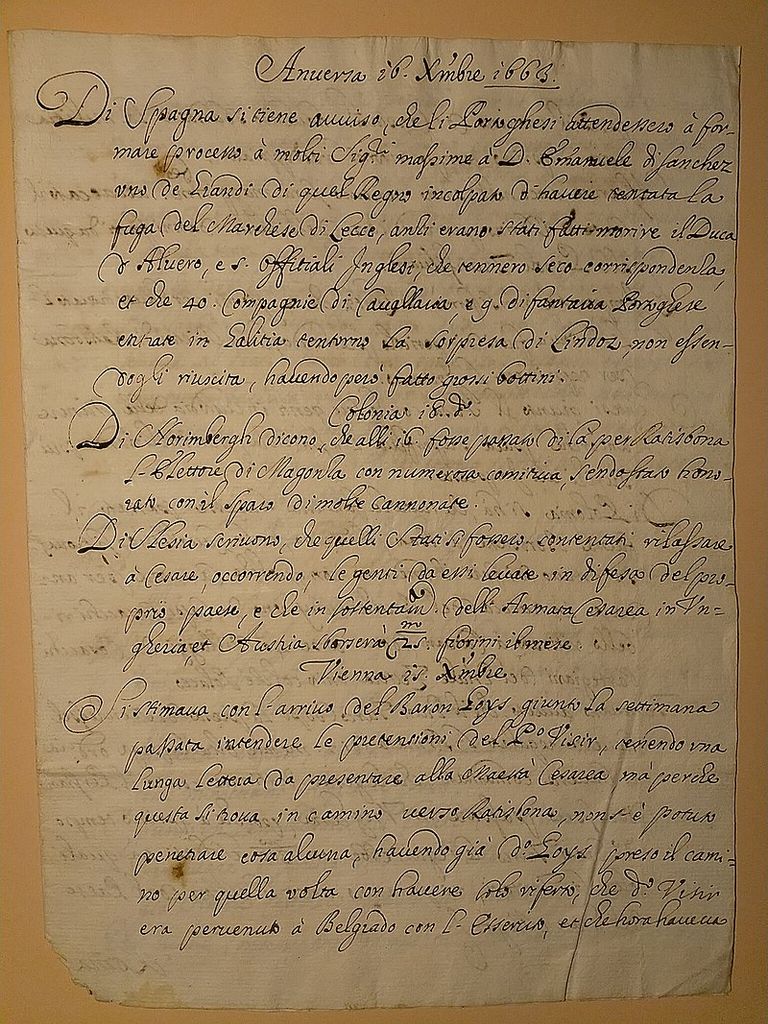 Anuersa 16. Xmbre 1663.
Di Spagna si tiene auuiso, che li Portoghesi attendessero à for-
mare processo à molti Sig.ri massime à D. Emanuele di sanchez
vno de Grandi di quel Regno incolpato d'hauere tentata la
fuga del Marchese di Lecce, anzi erano stati fatti morire il Duca
d'Aluero, e 5. offitiali Inglesi, che tennero seco corrispondenza,
et che 40. Compagnie di Cauallaria, e 9. di fantaria Portoghese
entrate in Galitia tentorno la sorpresa di Lindoz, non essen-
dogli riuscita, hauendo però fatto grossi bottini.
Colonia 18. d.o
Di Norimbergh dicono, che alli 16. fosse passato di là per Ratisbona
l'Elettore di Magonza con numerosa comitiua, sendo stato hono-
rato con il sparo di molte cannonate.
Di Slesia scriuono, che quelli Stati si fossero contentati rilassare
à Cesare, occorrendo, le genti da essi leuate in difesa del pro-
prio paese, e che in sostentam.o dell'Armata Cesarea in Vn-
gheria, et Austria sborserà 25 m fiorini il mese.
Vienna 15. Xmbre
Si stimaua con l'arriuo del Baron Goys, giunto la settimana
passata intendere le pretensioni del P.o Visir, tenendo vna
lunga lettera da presentare alla Maestà Cesarea, mà perche
questa si troua in camino uerso Ratisbona, non s'è potuto
penetrare cosa alcuna, hauendo già d.o Goys preso il cami-
no per quella volta con hauere solo riferto, che d.o Visir
era peruenuto à Belgrado con l'Essercito, et che hora haueua